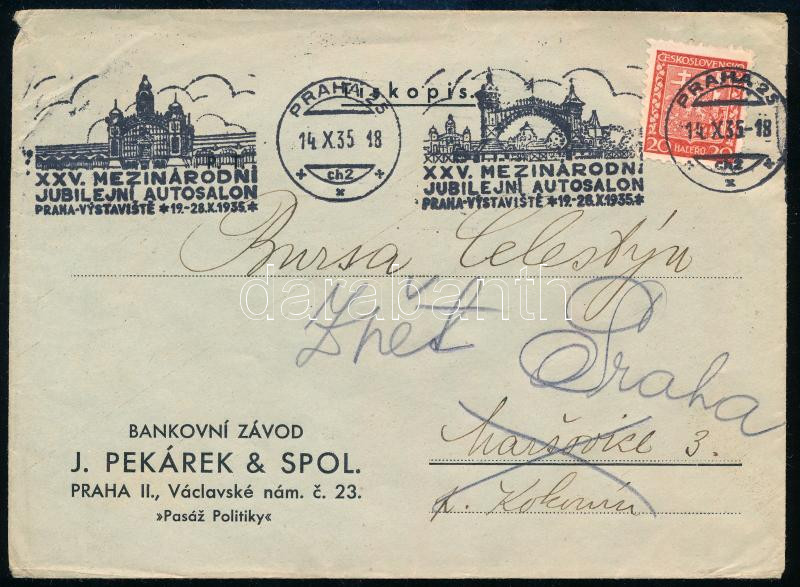 Tiskopis.
P. T.
XXV. MEZINÁRODNI
JUBILEJNÍ AUTOSALON
PRAHA-VÝSTAVIŠTĚ *19.-28.X.1935.*
PRAHA 25
14.X.35 18
ch2
XXV. MEZINÁRODNI
JUBILEJNÍ AUTOSALON
PRAHA-VÝSTAVIŠTĚ *19.-28.X.1935.*
ČESKOSLOVENSKO
20 HALÉŘŮ 20
PRAHA 25
14.X.35-18
ch2
Bursa Celestýn
darabanth
Zpět Praha
Maršovice 3.
p. Kokonín
BANKOVNÍ ZÁVOD
J. PEKÁREK & SPOL.
PRAHA II., Václavské nám. č. 23.
»Pasáž Politiky«